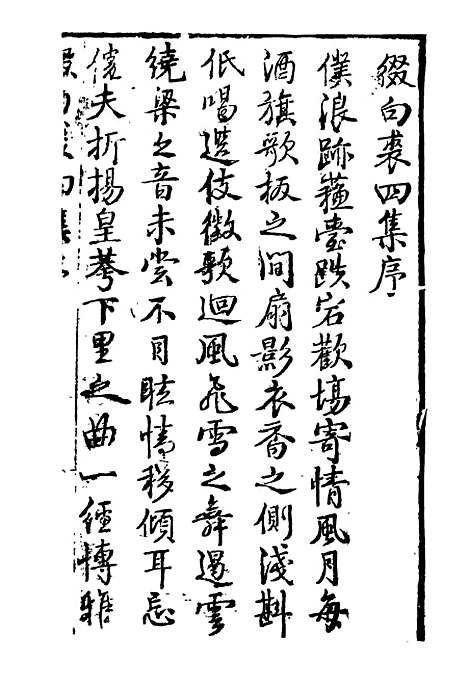 綴白裘四集序
僕浪跡蘓臺跌宕歡塲寄情風月每
酒旗歌板之間扇影衣香之側淺斟
低唱選伎徵歌迴風飛雪之舞遏雲
繞梁之音未嘗不目眩情移傾耳忘
倦夫折揚皇荂下里之曲一經轉雅